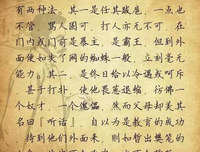 有两种法。其一是任其跋扈，一点也
不管，骂人固可，打人亦无不可，在
门内或门前是暴主，是霸王，但到外
面便如失了网的蜘蛛一般，立刻毫无
能力。其二，是终日给以冷遇或呵斥
，甚于打扑，使他畏葸退缩，彷佛一
个奴才，一个傀儡，然而父母却美其
名曰「听话」，自以为是教育的成功
待到他们外面来，则如暂出樊笼的